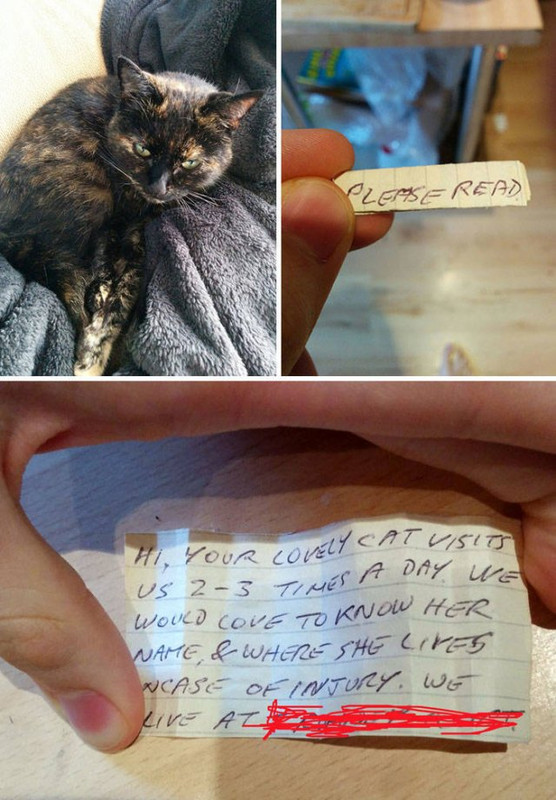 PLEASE READ
HI, YOUR LOVELY CAT VISITS
US 2-3 TIMES A DAY. WE
WOULD LOVE TO KNOW HER
NAME, & WHERE SHE LIVES
NCASE OF INJURY. WE
LIVE AT